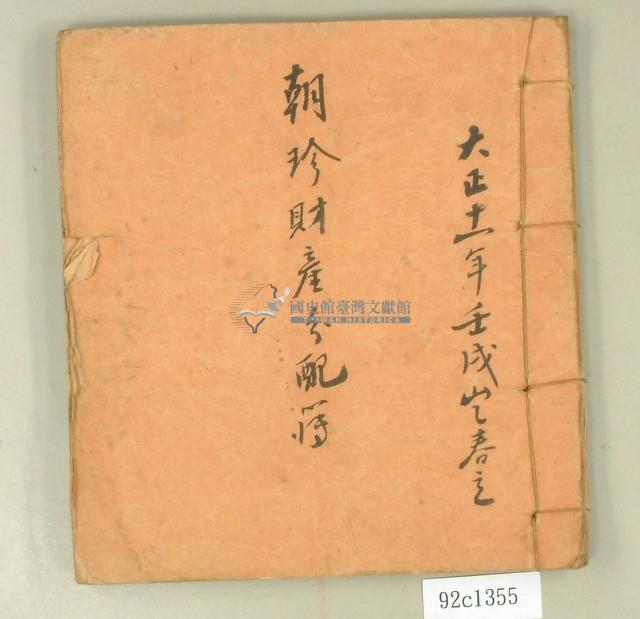 大正十一年壬戌岁春立
朝珍財產分配簿
國史館臺灣文獻館
TAIWAN HISTORICA
92c1355